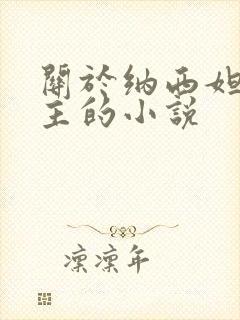 關於納西妲
主的小説
凜凜年